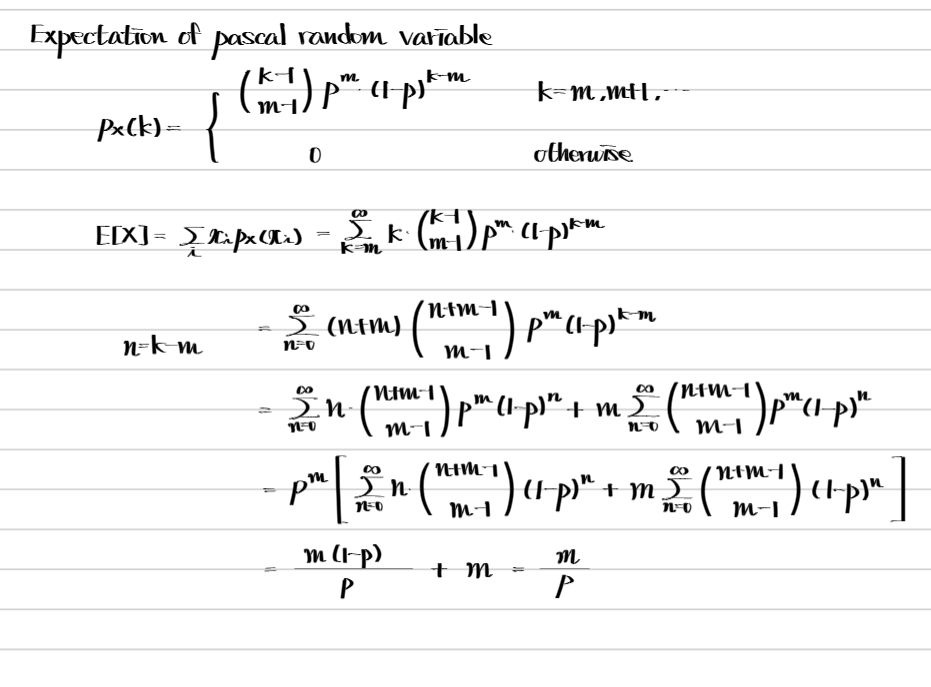 Expectation of pascal random variable
p_X(k) = { \binom{k-1}{m-1} p^m (1-p)^{k-m}    k=m, m+1, ...
0    otherwise
E[X] = \sum_i x_i p_X(x_i) = \sum_{k=m}^{∞} k · \binom{k-1}{m-1} p^m · (1-p)^{k-m}
n=k-m    = \sum_{n=0}^{∞} (n+m) \binom{n+m-1}{m-1} p^m (1-p)^{k-m}
= \sum_{n=0}^{∞} n · \binom{n+m-1}{m-1} p^m (1-p)^n + m \sum_{n=0}^{∞} \binom{n+m-1}{m-1} p^m (1-p)^n
= p^m [ \sum_{n=0}^{∞} n · \binom{n+m-1}{m-1} (1-p)^n + m \sum_{n=0}^{∞} \binom{n+m-1}{m-1} (1-p)^n ]
= \frac{m(1-p)}{p} + m = \frac{m}{p}